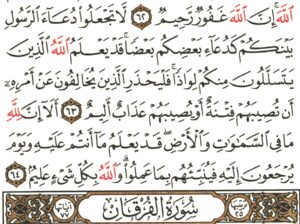 ٱللَّهَ إِنَّ ٱللَّهَ غَفُورٌ رَّحِيمٌ ٦٢ لَّا تَجْعَلُوا۟ دُعَآءَ ٱلرَّسُولِ
بَيْنَكُمْ كَدُعَآءِ بَعْضِكُم بَعْضًا ۚ قَدْ يَعْلَمُ ٱللَّهُ ٱلَّذِينَ
يَتَسَلَّلُونَ مِنكُمْ لِوَاذًا ۚ فَلْيَحْذَرِ ٱلَّذِينَ يُخَالِفُونَ عَنْ أَمْرِهِۦٓ
أَن تُصِيبَهُمْ فِتْنَةٌ أَوْ يُصِيبَهُمْ عَذَابٌ أَلِيمٌ ٦٣ أَلَآ إِنَّ لِلَّهِ
مَا فِى ٱلسَّمَـٰوَٰتِ وَٱلْأَرْضِ ۖ قَدْ يَعْلَمُ مَآ أَنتُمْ عَلَيْهِ وَيَوْمَ
يُرْجَعُونَ إِلَيْهِ فَيُنَبِّئُهُم بِمَا عَمِلُوا۟ ۗ وَٱللَّهُ بِكُلِّ شَىْءٍ عَلِيمٌۢ ٦٤
سُورَةُ ٱلْفُرْقَانِ